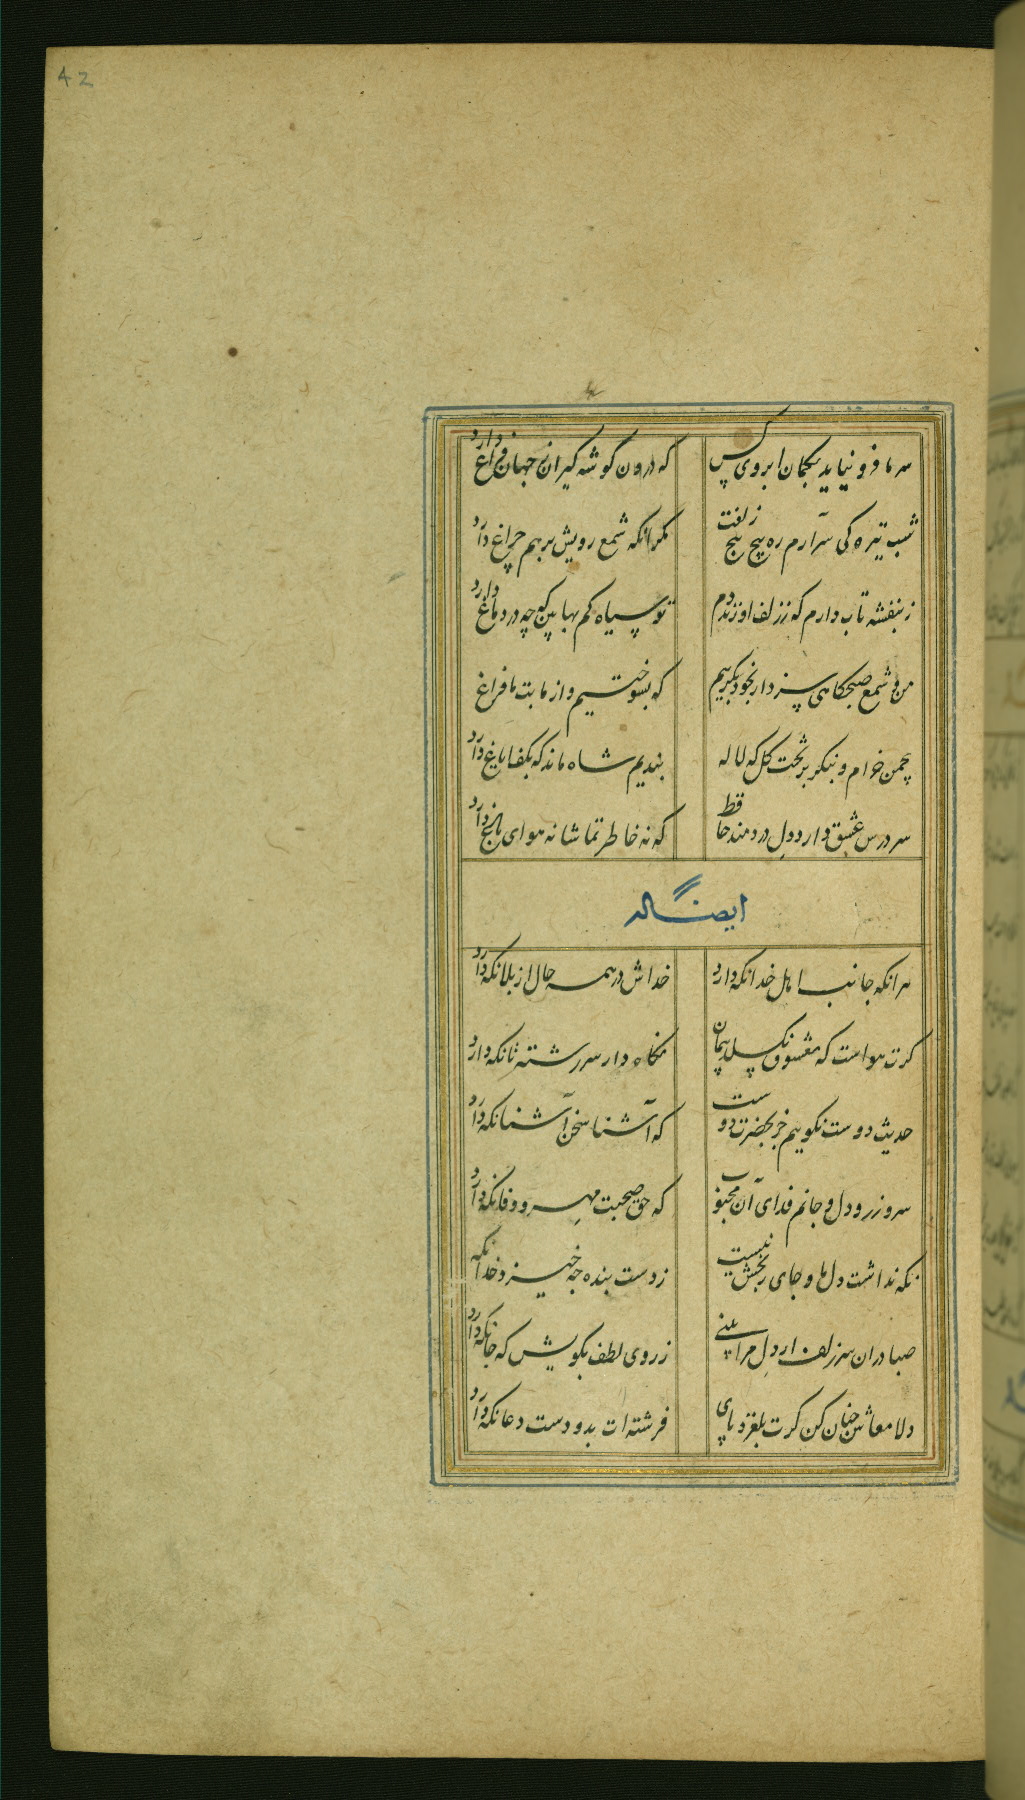 42
سر ما فرو نیاید بکمان ابروی کس
که درون گوشه گیران ز جهان فراغ دارد
شب تیره کی سرآرم ره پیچ پیچ زلفت
مگر آنکه شمع رویش برهم چراغ دارد
ز بنفشه تاب دارم که ز زلف او زند دم
تو سیاه کم بها بین که چه در دماغ دارد
من و شمع صبحگاهی سزد ار بخود بگرییم
که بسوختیم و از ما بت ما فراغ
بچمن خرام و بنگر بر تخت گل که لاله
بندیم شاه ماند که بکف ایاغ دارد
سر درس عشق دارد دل دردمند حافظ
که نه خاطر تماشا نه هوای باغ دارد
ایضا له
هر آنکه جانب اهل خدا نگه دارد
خداش در همه حال از بلا نگه دارد
گرت هواست که معشوق نگسلد پیمان
نگاه دار سر رشته تا نگه دارد
حدیث دوست نگوییم جز بحضرت دوست
که آشنا سخن آشنا نگه دارد
سر و زر و دل و جانم فدای آن محبوب
که حق صحبت مهر و وفا نگه دارد
نگه نداشت دل ما و جای رنجش نیست
ز دست بنده چه خیزد خدا نگه
صبا در ان سر زلف ار دل مرا بینی
ز روی لطف بگویش که جا نگه دارد
دلا معاش چنان کن که گرت بلغزد پای
فرشته ات بدو دست دعا نگه دارد